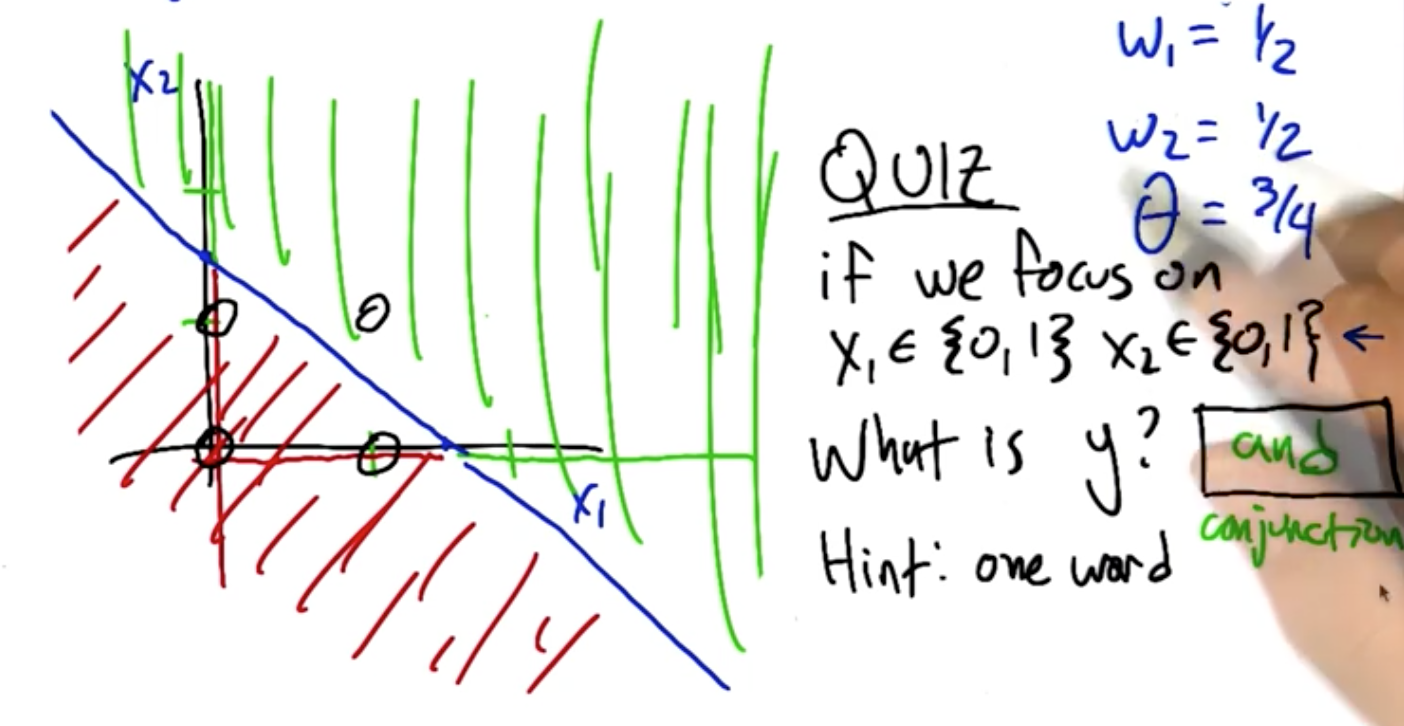 X2
X1
W1 = 1/2
W2 = 1/2
θ = 3/4
QUIZ
if we focus on
X1 ∈ {0,1} X2 ∈ {0,1} ←
What is y? and
conjunction
Hint: one word